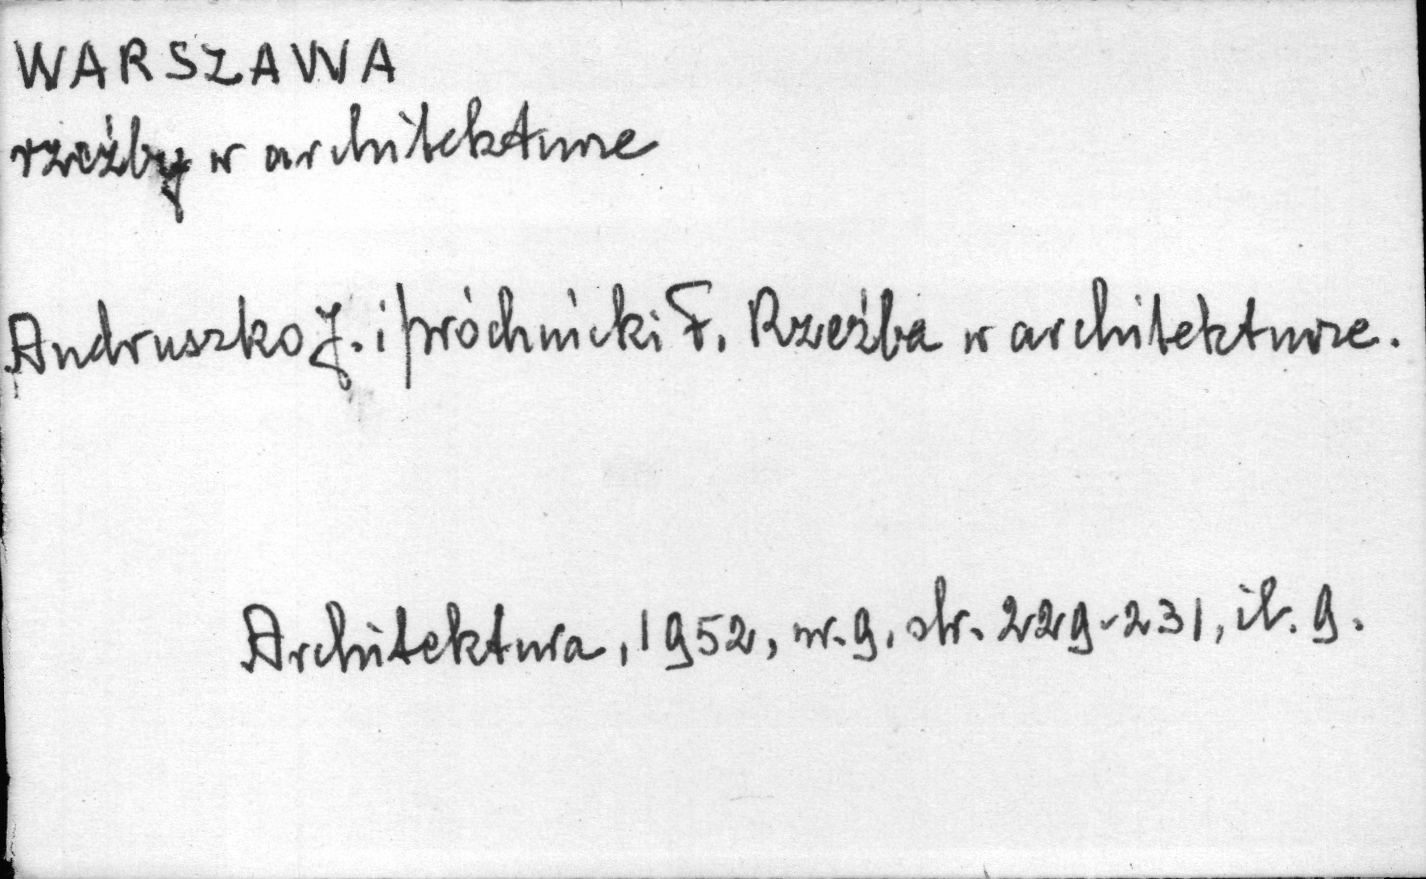 WARSZAWA
rzeźby w architekturze
Andruszko J. i Próchnicki F. Rzeźba w architekturze.
Architektura, 1952, nr. 9, str. 229-231, il. 9.